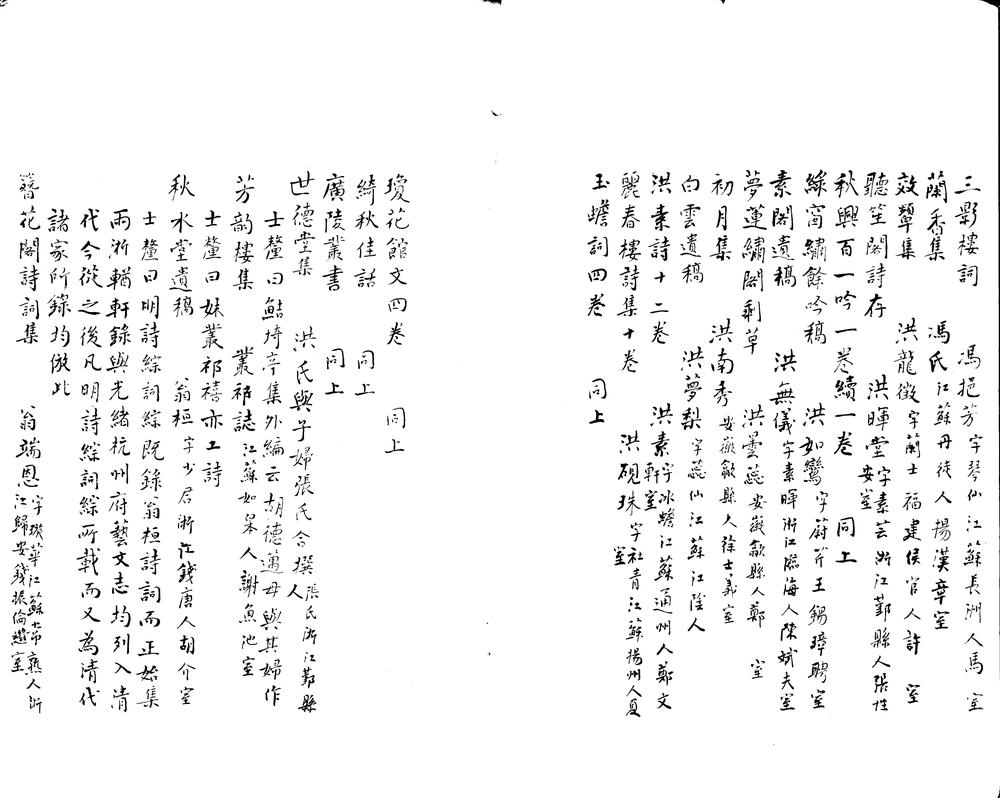 三影樓詞 馮挹芳字琴仙江蘇長洲人馬 室
蘭秀集 馮氏江蘇丹徒人揚漢章室
效顰集 洪龍徵字蘭士福建侯官人許 室
聽笙閣詩存 洪暉堂字素芸浙江鄞縣人張性安室
秋興百一吟一卷續一卷 同上
綠窗繡餘吟稿 洪如鸞字蔚芹王錫璋聘室
素閣遺稿 洪無儀字素暉浙江臨海人陳斌夫室
夢蓮繡閣剩草 洪曇蕊安徽歙縣人鄭 室
初月集 洪南秀安徽歙縣人徐士義室
白雲遺稿 洪夢梨字蕊仙江蘇江陰人
洪素詩十二卷 洪素字冰蟾江蘇通州人鄭文軒室
麗春樓詩集十卷 洪硯珠字社青江蘇揚州人夏室
玉蟾詞四卷 同上
瓊花館文四卷 同上
綺秋佳話 同上
廣陵叢書 同上
世德堂集 洪氏與子婦張氏合撰張氏浙江鄞縣人
士釐曰鮚埼亭集外編云胡德邁母與其婦作
芳韵樓集 叢祁誌江蘇如皋人謝魚池室
士釐曰妹叢祁禧亦工詩
秋水堂遺稿 翁桓字少君浙江錢唐人胡介室
士釐曰明詩綜詞綜既錄翁桓詩詞而正始集
兩浙輶軒錄與光緒杭州府藝文志均列入清
代今從之後凡明詩綜詞綜所載而又為清代
諸家所錄均倣此
簪花閣詩詞集 翁端恩字璇華江蘇常熟人浙江歸安錢振倫繼室